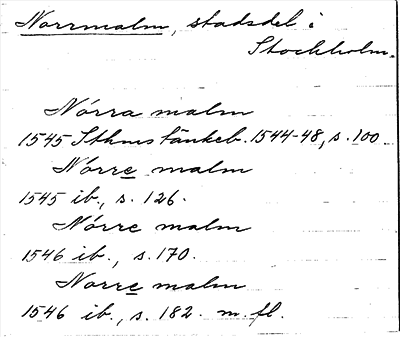 Norrmalm, stadsdel i
Stockholm.
Nórra malm
1545 Sthms tänkeb. 1544-48, s. 100
Nórre malm
1545 ib., s. 126.
Nórre malm
1546 ib., s. 170.
Norre malm
1546 ib., s. 182. m. fl.